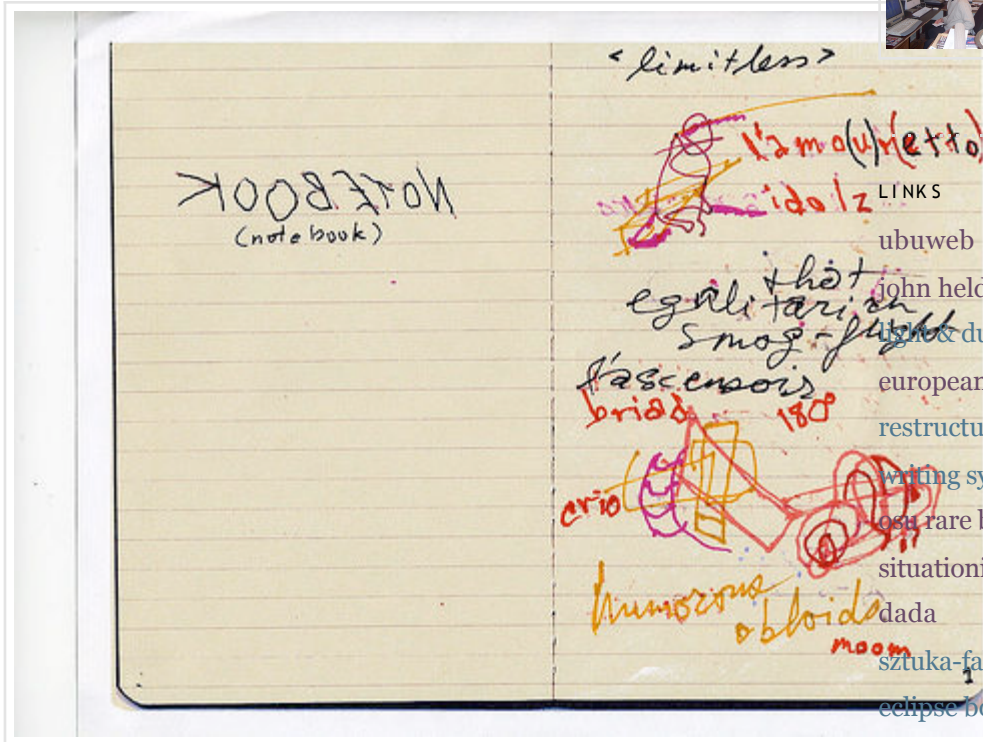 NOTEBOOK
(notebook)
<limitless>
l'amo(u)r(etto)
idolz
that
egalitarian
smog-flight
l'ascensois
briad 180°
crio
humorous
obloids
moom
1
LINKS
ubuweb
john held
light & du
european
restructu
writing sy
osu rare b
situationi
dada
sztuka-fa
eclipse bo